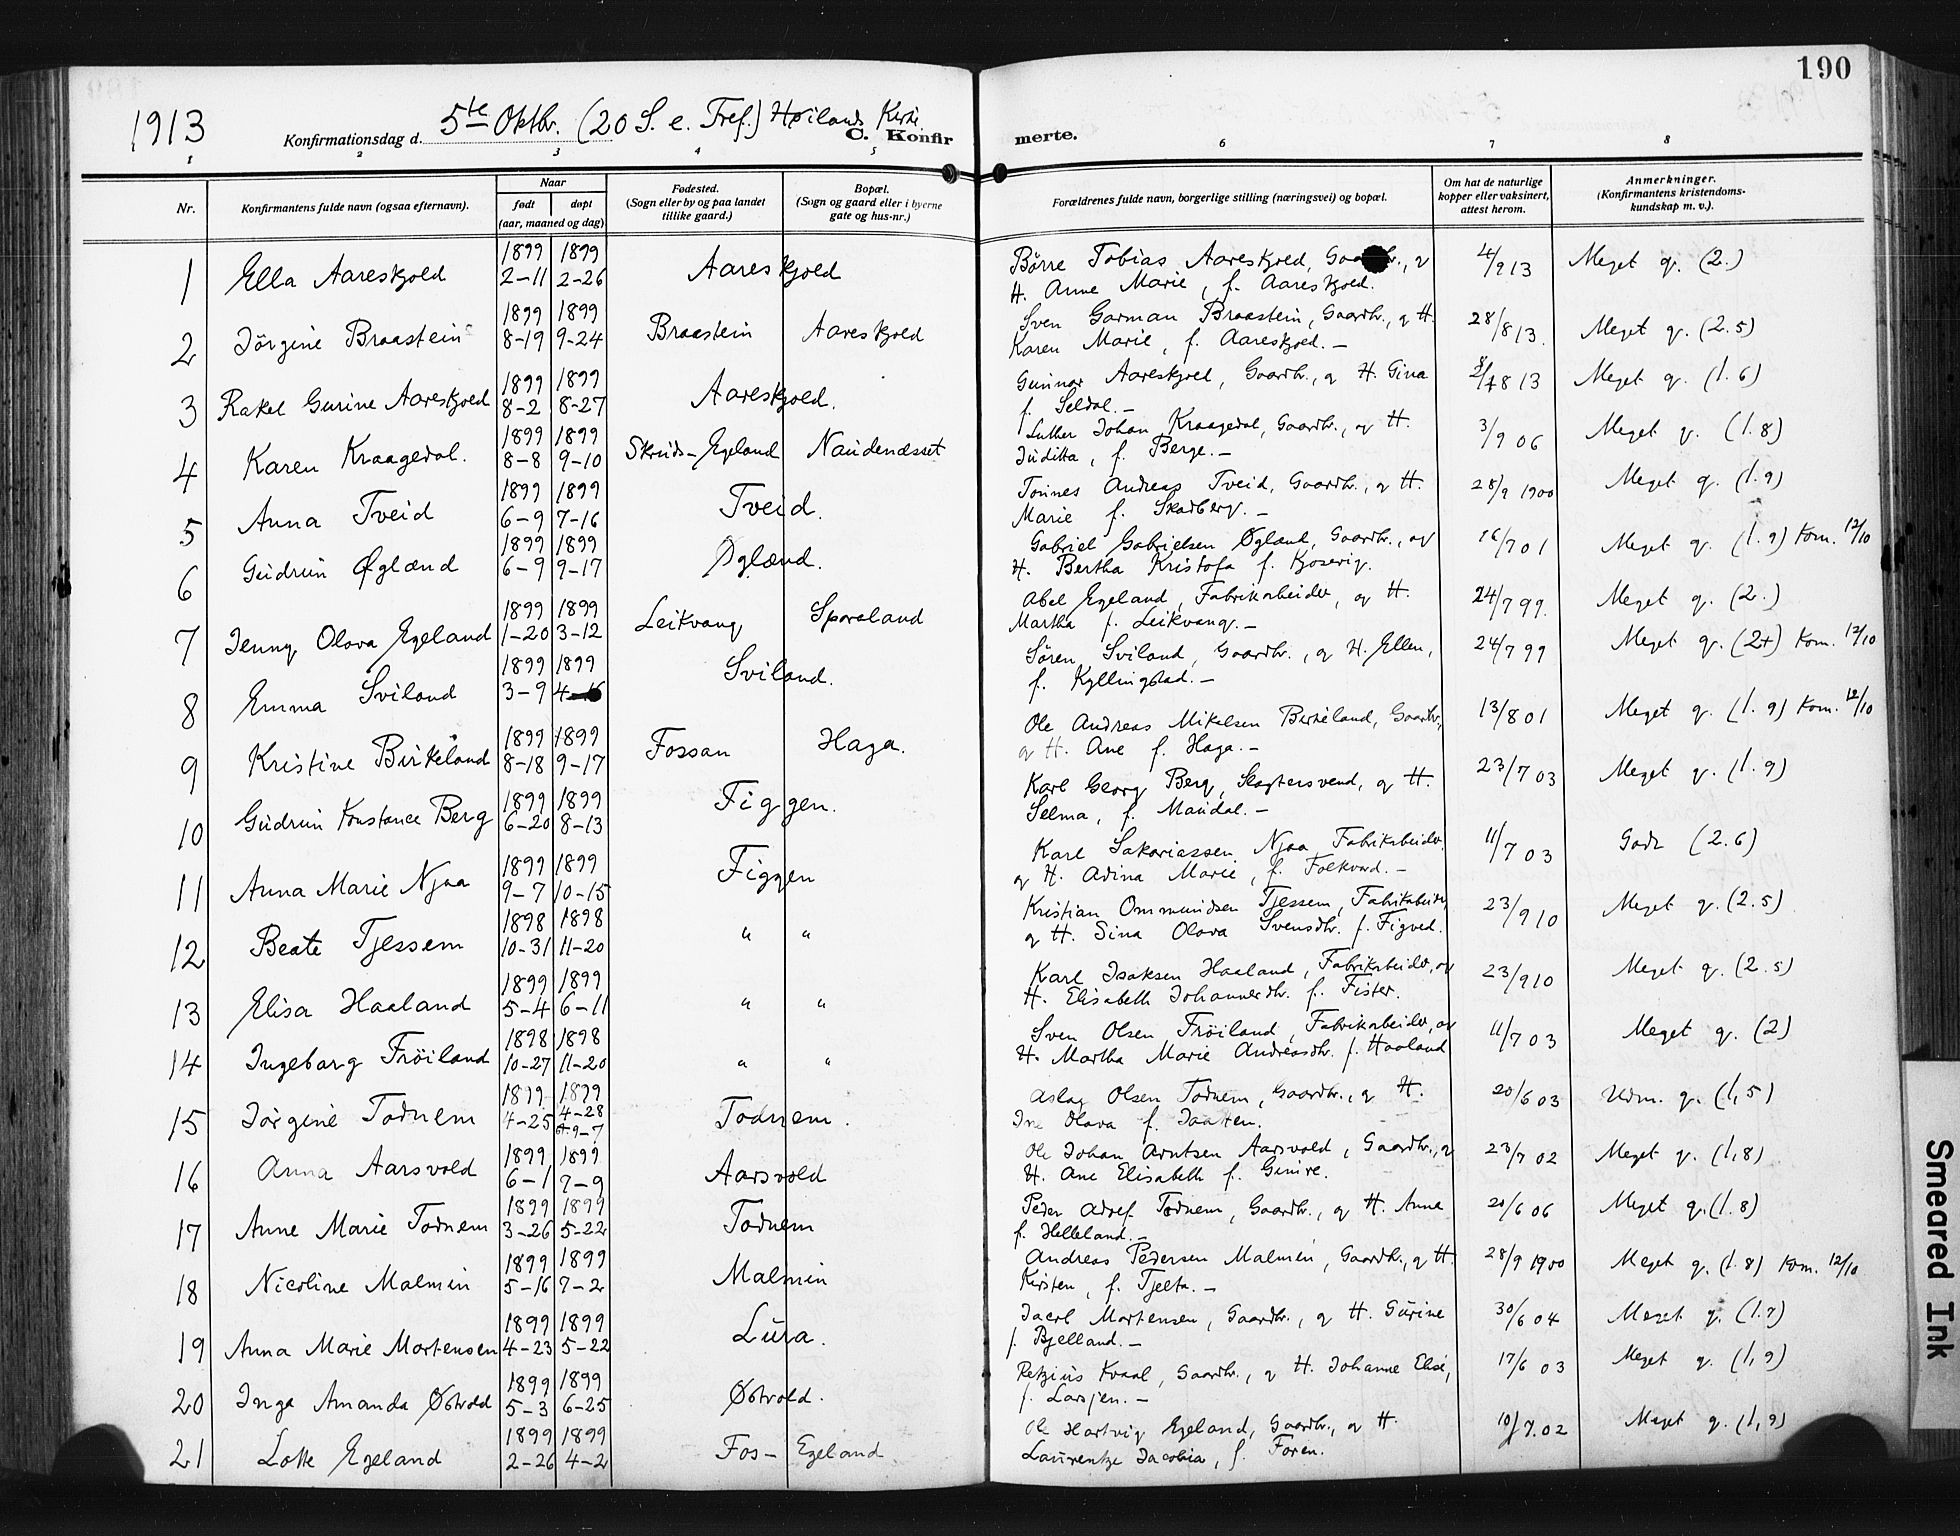 190
1913
Konfirmationsdag d. 5te Oktbr. (20 S. e. Tref.) Høilands Kirke
C. Konfirmerte.
1 2 3 4 5 6 7 8
Nr.
Konfirmantens fulde navn (ogsaa efternavn).
Naar
født døpt
(aar, maaned og dag)
Fødested.
(Sogn eller by og paa landet
tillike gaard.)
Bopæl.
(Sogn og gaard eller i byerne
gate og hus-nr.)
Forældrenes fulde navn, borgerlige stilling (næringsvei) og bopæl.
Om hat de naturlige
kopper eller vaksinert,
attest herom.
Anmerkninger.
(Konfirmantens kristendoms-
kundskap m. v.).
1 Ella Aareskjold 1899 2-11 1899 2-26 Aareskjold Börre Tobias Aareskjold, g 4/9 13 Meget g. (2.)
H. Anne Marie, f. Aareskjold.
2 Jörgine Braastein 1899 8-19 1899 9-24 Braastein Aareskjold Sven Gorman Braastein, Gaardbr., g H. 28/8 13. Meget g. (2.5)
Karen Marie, f. Aareskjold. -
3 Rakel Gurine Aareskjold 1899 8-2 1899 8-27 Aareskjold. Gunnar Aareskjold, Gaardbr., g H. Gina 8 13 Meget g. (1.6)
f. Seldal. -
4 Karen Kraagedal. 1899 8-8 1899 9-10 Skruds-Egeland Naudenæsset Luther Johan Kraagedal, Gaardbr., og H. 3/9 06 Meget g. (1.8)
Juditta, f. Berge. -
5 Anna Tveid 1899 6-9 1899 7-16 Tveid. Tönnes Andreas Tveid, Gaardbr., g H. 28/9 1900 Meget g. (1.9)
Marie f. Skadberg. -
6 Gudrun Øglænd 1899 6-9 1899 9-17 Øglænd. Gabriel Gabrielsen Øgland, Gaardbr., og 16/7 01 Meget g. (1.9) Kom. 12/10
H. Bertha Kristofa f. Kjosevig.
7 Jenny Olava Egeland 1899 1-20 1899 3-12 Leikvang Sporaland Abel Egeland, Fabrikarbeider, og H. 24/7 99. Meget g. (2.)
Martha f. Leikvang. -
8 Emma Sviland 1899 3-9 1899 Sviland. Sören Sviland, Gaardbr., g H. Ellen, 24/7 99 Meget g. (2+) Kom. 12/10
f. Kyllingstad. -
9 Kristine Birkeland 1899 8-18 1899 9-17 Fossan Haga. Ole Andreas Mikelsen Berkeland, Gaardbr., 13/8 01 Meget g. (1.9) Kom. 12/10
g H. Ane f. Haga. -
10 Gudrun Konstance Berg 1899 6-20 1899 8-13 Figgen. Karl Georg Berg, Slagtersvend, g H. 23/7 03 Meget g. (1.9)
Selma, f. Maudal. -
11 Anna Marie Njaa 1899 9-7 1899 10-15 Figgen Karl Sakariassen Njaa, Fabrikarbeider, 11/7 03 Godt (2.6)
g H. Adina Marie, f. Folkvord. -
12 Beate Tjessem 1898 10-31 1898 11-20 " " Kristian Ommundsen Tjessem, Fabrikarbeider, 23/9 10 Meget g. (2.5)
g H. Sina Olava Svensdtr. f. Figved.
13 Elisa Haaland 1899 5-4 1899 6-11 " " Karl Isaksen Haaland, Fabrikarbeider, og 23/9 10 Meget g. (2.5)
H. Elisabeth Johannesdtr. f. Fister.
14 Ingeborg Fröiland 1898 10-27 1898 11-20 " " Sven Olsen Fröiland, Fabrikarbeider, og 11/7 03 Meget g. (2)
H. Martha Marie Andreasdtr. f. Haaland
15 Jörgine Todnem 1899 4-25 1899 4-28 9-7 Todnem. Aslag Olsen Todnem, Gaardbr., g H. 20/6 03 Udm. g. (1,5)
Ine Olava f. Jaatten.
16 Anna Aarsvold 1899 6-1 1899 7-9 Aarsvold Ole Johan Arntsen Aarsvold, Gaardbr., g 23/7 02 Meget g. (1,8)
H. Ane Elisabeth f. Gimre.
17 Anne Marie Todnem 1899 3-26 1899 5-22 Todnem Peder Adolf Todnem, Gaardbr., g H. Anne 20/6 06 Meget g. (1.8)
f. Helleland. -
18 Nicoline Malmin 1899 5-16 1899 7-2 Malmin Andreas Pedersen Malmin, Gaardbr., g H. 28/9 1900 Meget g. (1.8) Kom. 12/10
Kirsten, f. Tjelta. -
19 Anna Marie Mortensen 1899 4-23 1899 5-22 Lura. Jacob Mortensen, Gaardbr., g H. Gurine 30/6 04 Meget g. (1.9)
f. Bjelland. -
20 Inga Amanda Østvold 1899 5-3 1899 6-25 Østvold. Retzius Kvaal, Gaardbr., g H. Johanne Elise, 17/6 03 Meget g. (1,9)
f. Lasjen. -
21 Lotte Egeland 1899 2-26 1899 4-2 Fos-Egeland Ole Hartvig Egeland, Gaardbr., og H. 10/7. 02 Meget g. (1,9)
Laurentze Jacobia, f. Foren.
Smeared Ink